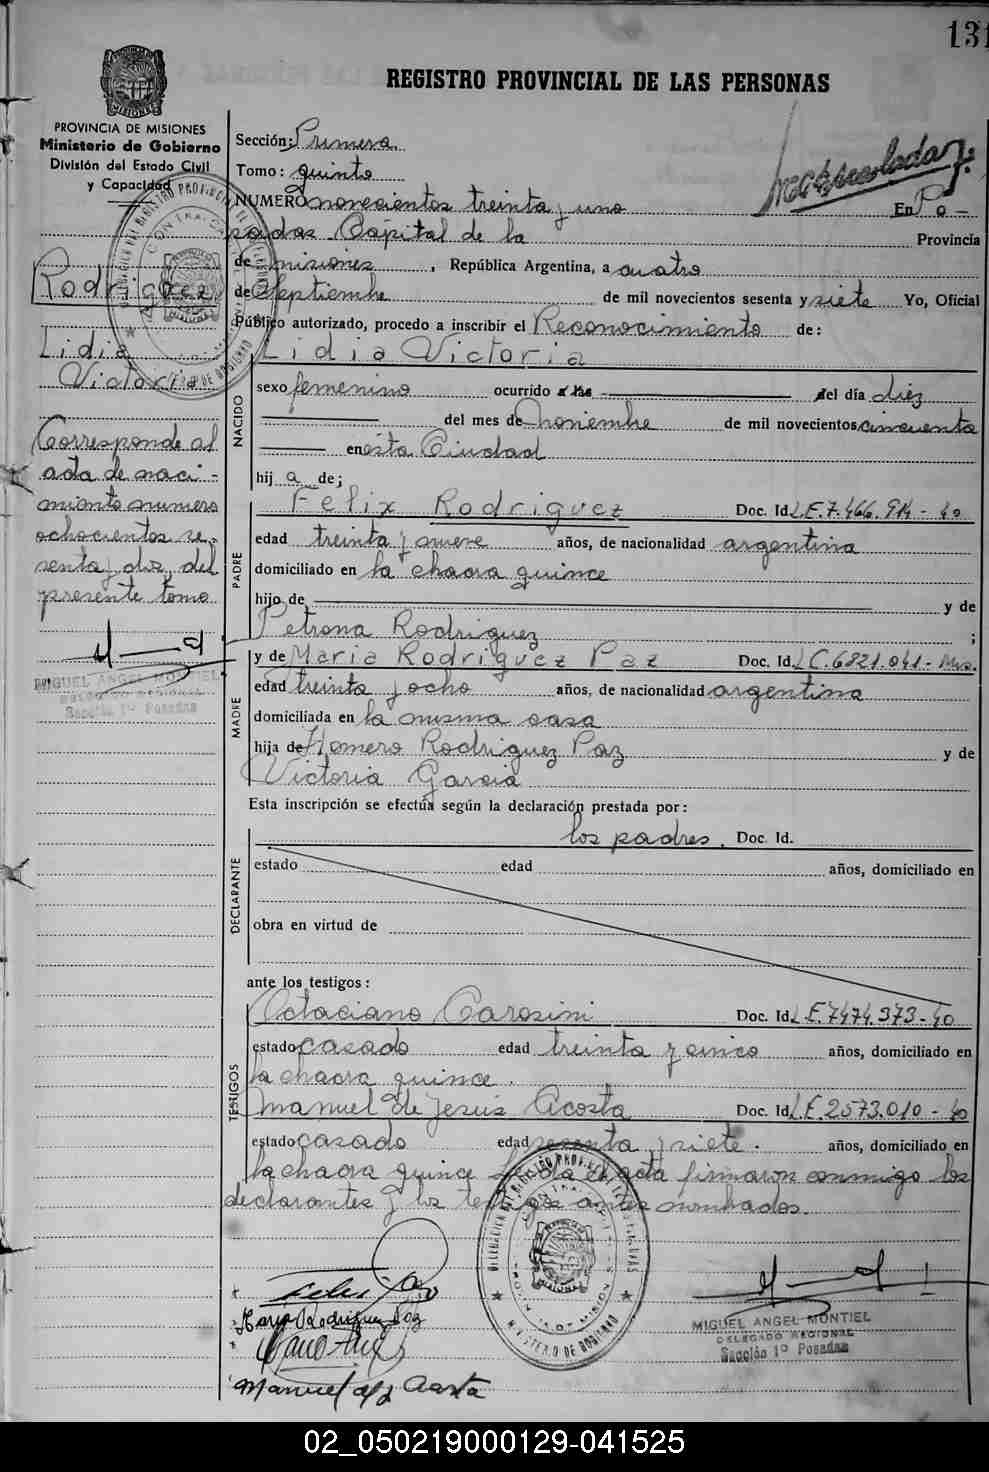 131
REGISTRO PROVINCIAL DE LAS PERSONAS
PROVINCIA DE MISIONES
Ministerio de Gobierno
División del Estado Civil
y Capacidad
Rodriguez
Lidia
Victoria
Corresponde al
acta de naci-
miento numero
ochocientos se-
senta y dos del
presente tomo
MIGUEL ANGEL MONTIEL
DELEGADO REGIONAL
Sección 1º Posadas
Sección: Primera
Tomo: quinto
NUMERO novecientos treinta y uno En Po-
sadas Capital de la Provincia
de misiones, República Argentina, a cuatro
de Septiembre de mil novecientos sesenta y siete Yo, Oficial
Público autorizado, procedo a inscribir el Reconocimiento de:
NACIDO
Lidia Victoria
sexo femenino ocurrido del día diez
del mes de noviembre de mil novecientos cincuenta
en esta Ciudad
hij a de;
PADRE
Felix Rodriguez Doc. Id. L.E. 7.466.914-40
edad treinta y nueve años, de nacionalidad argentina
domiciliado en la chacra quince
hijo de y de
Petrona Rodriguez ;
MADRE
y de Maria Rodriguez Paz Doc. Id. L.C. 6821.041-Mns.
edad treinta y ocho años, de nacionalidad argentina
domiciliada en la misma casa
hija de Homero Rodriguez Paz y de
Victoria Garcia
Esta inscripción se efectúa según la declaración prestada por:
DECLARANTE
los padres. Doc. Id.
estado edad años, domiciliado en
obra en virtud de
ante los testigos:
TESTIGOS
Octaciano Carosini Doc. Id. L.E. 7474.373-40
estado casado edad treinta y cinco años, domiciliado en
la chacra quince.
Manuel de Jesús Acosta Doc. Id. L.E. 2573.010-40
estado casado edad sesenta y siete. años, domiciliado en
la chacra quince Leida el acta firmaron conmigo los
declarantes y los testigos antes nombrados.
Maria Rodriguez Paz
Manuel d J Acosta
MIGUEL ANGEL MONTIEL
DELEGADO REGIONAL
Sección 1º Posadas
02_050219000129-041525